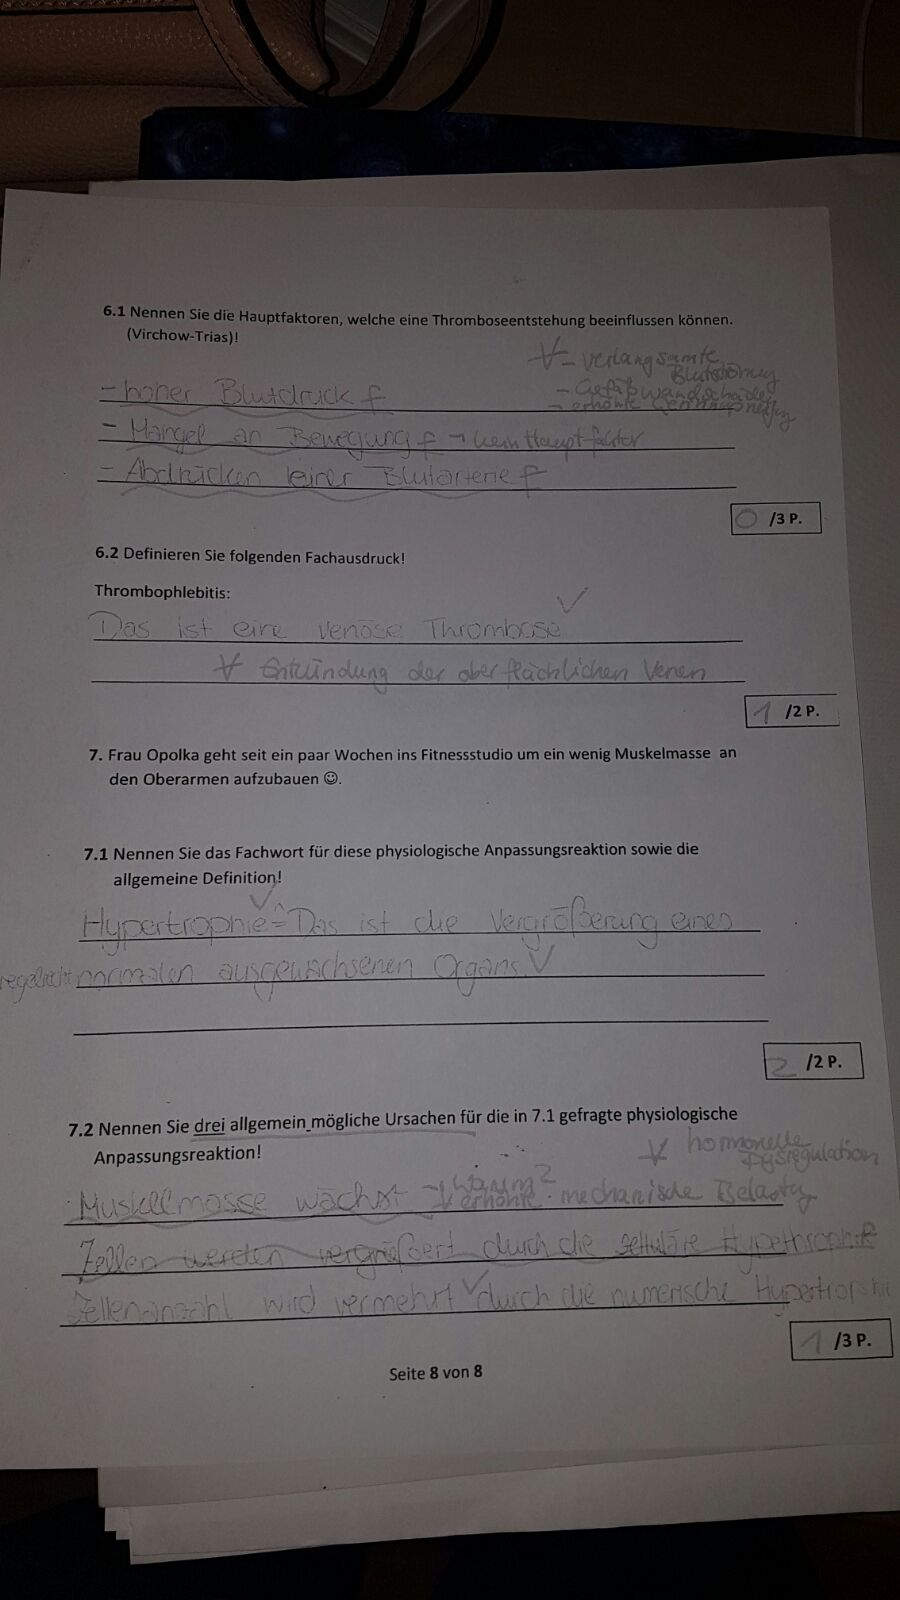 6.1 Nennen Sie die Hauptfaktoren, welche eine Thromboseentstehung beeinflussen können.
(Virchow-Trias)!
V - verlangsamte
Blutströmung
- Gefäßwandschäden
- erhöhte Gerinnungsneigung
- hoher Blutdruck f
- Mangel an Bewegung f → kein Hauptfaktor
- Abdrücken einer Blutarterie f
0 /3 P.
6.2 Definieren Sie folgenden Fachausdruck!
Thrombophlebitis:
Das ist eine venöse Thrombose ✓
V Entzündung der oberflächlichen Venen
1 /2 P.
7. Frau Opolka geht seit ein paar Wochen ins Fitnessstudio um ein wenig Muskelmasse an
den Oberarmen aufzubauen ☺.
7.1 Nennen Sie das Fachwort für diese physiologische Anpassungsreaktion sowie die
allgemeine Definition!
Hypertrophie ≙ Das ist die Vergrößerung eines
normalen ausgewachsenen Organs. ✓
2 /2 P.
7.2 Nennen Sie drei allgemein mögliche Ursachen für die in 7.1 gefragte physiologische
Anpassungsreaktion!
V hormonelle
Dysregulation
Muskelmasse wächst → Warum?
V erhöhte mechanische Belastg
Zellen wereten vergrößert durch die zelluläre Hyperthrophie
Zellenanzahl wird vermehrt ✓ durch die numerische Hypertrophie
1 /3 P.
Seite 8 von 8